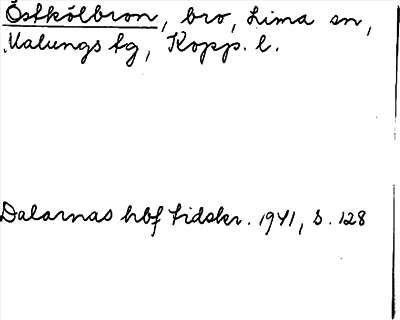 Östkölbron, bro, Lima sn,
Malungs tg, Kopp. l.
Dalarnas hbf tidskr. 1941, s. 128